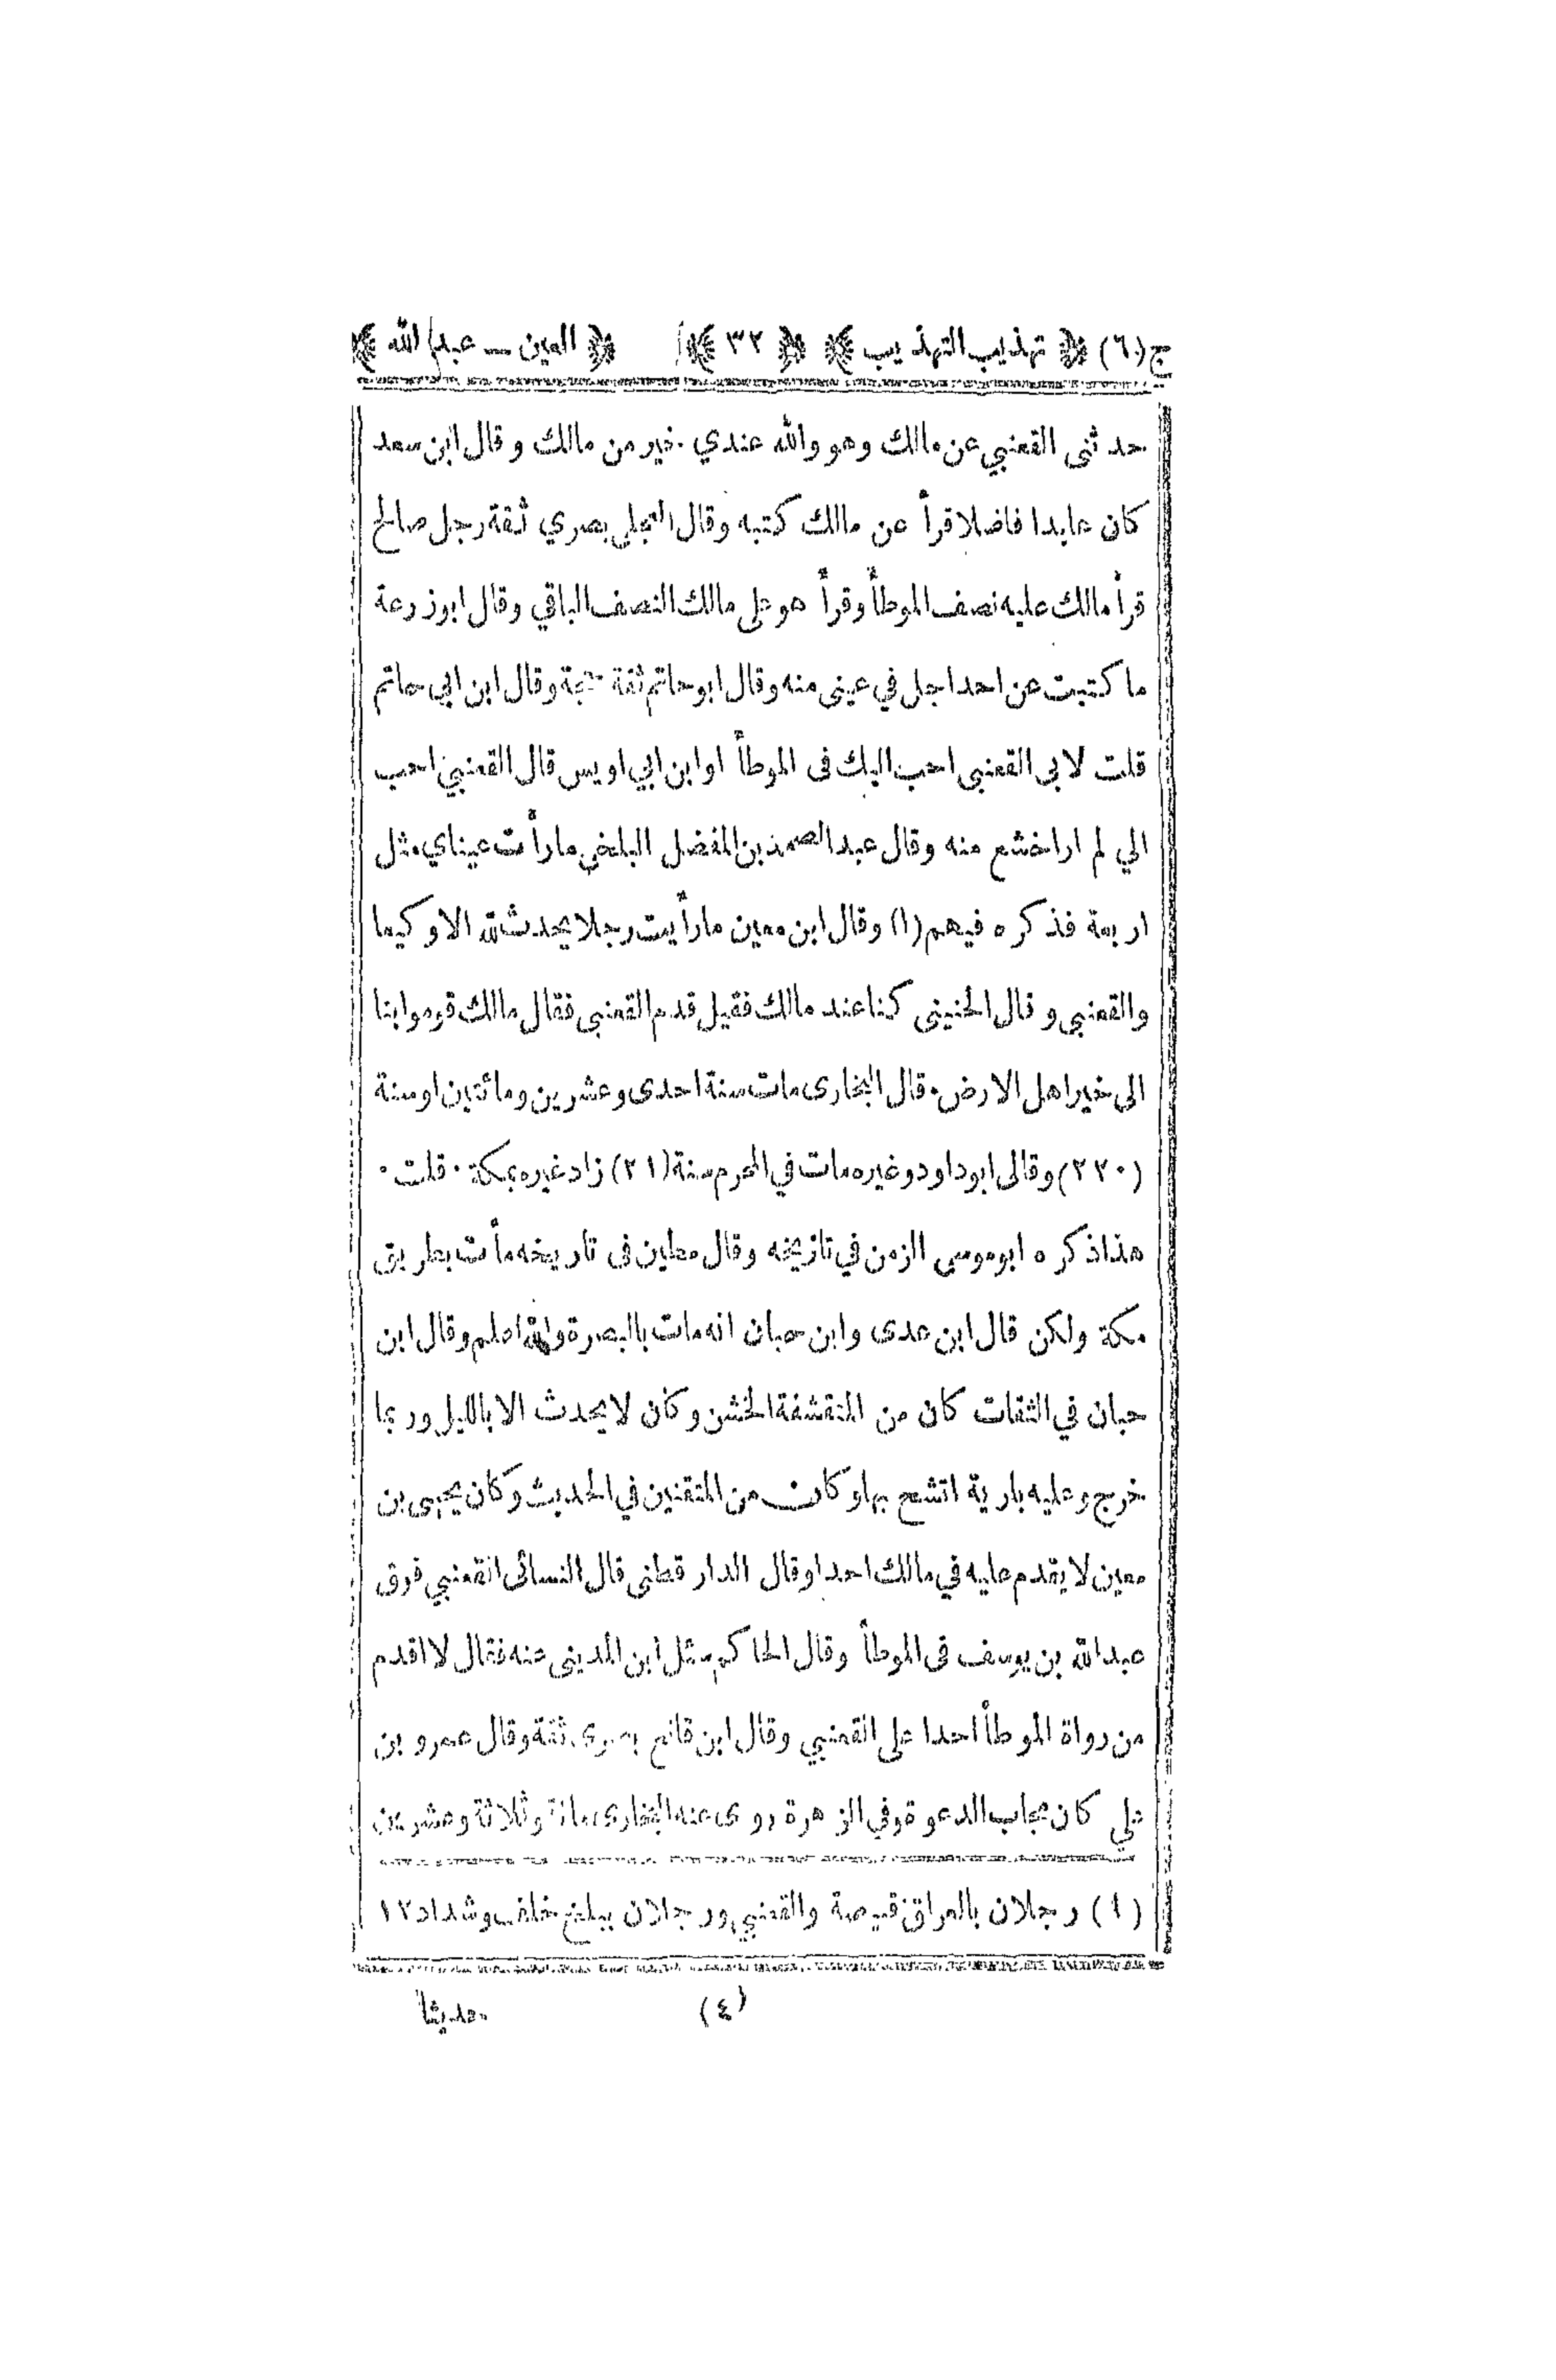 ج(٦) ﴿ تهذيب التهذيب ﴾ ﴿ ٣٢ ﴾ ﴿ العين ـ عبد الله ﴾
حدثنى القعنبي عن مالك وهو والله عندي خير من مالك وقال ابن سعد
كان عابدا فاضلا قرأ عن مالك كتبه وقال العجلي بصري ثقة رجل صالح
قرأ مالك عليه نصف الموطأ وقرأ هو على مالك النصف الباقي وقال ابوزرعة
ما كتبت عن احد اجل في عينى منه وقال ابوحاتم ثقة حجة وقال ابن ابي حاتم
قلت لابى القعنبى احب اليك فى الموطأ او ابن ابي اويس قال القعنبي احب
الي لم ار اخشع منه وقال عبد الصمد بن المفضل البلخى ما رأت عيناي مثل
اربعة فذكره فيهم (١) وقال ابن معين ما رأيت رجلا يحدث لله الا وكيعا
والقعنبي وقال الحنينى كنا عند مالك فقيل قدم القعنبى فقال مالك قوموا بنا
الى خير اهل الارض. قال البخارى مات سنة احدى وعشرين ومائتين او سنة
(٢٢٠) وقال ابوداود وغيره مات في المحرم سنة (٢١) زاد غيره بمكة. قلت.
هذا ذكره ابوموسى الزمن في تاريخه وقال مطين فى تاريخه مأت بطريق
مكة ولكن قال ابن عدى وابن حبان انه مات بالبصرة والله اعلم وقال ابن
حبان في الثقات كان من المتقشفة الخشن وكان لا يحدث الا بالليل وربما
خرج وعليه بارية اتشح بها وكان من المتقنين في الحديث وكان يحيى بن
معين لا يقدم عليه في مالك احدا وقال الدارقطنى قال النسائى القعنبي فوق
عبد الله بن يوسف فى الموطأ وقال الحاكم سئل ابن المدينى عنه فقال لا اقدم
من رواة الموطأ احدا على القعنبي وقال ابن قانع بصرى ثقة وقال عمرو بن
علي كان مجاب الدعوة وفي الزهرة روى عنه البخارى مائة وثلاثة وعشرين
(١) رجلان بالعراق قبيصة والقعنبي ورجلان ببلخ خلف وشداد ١٢
(٤) حديثا